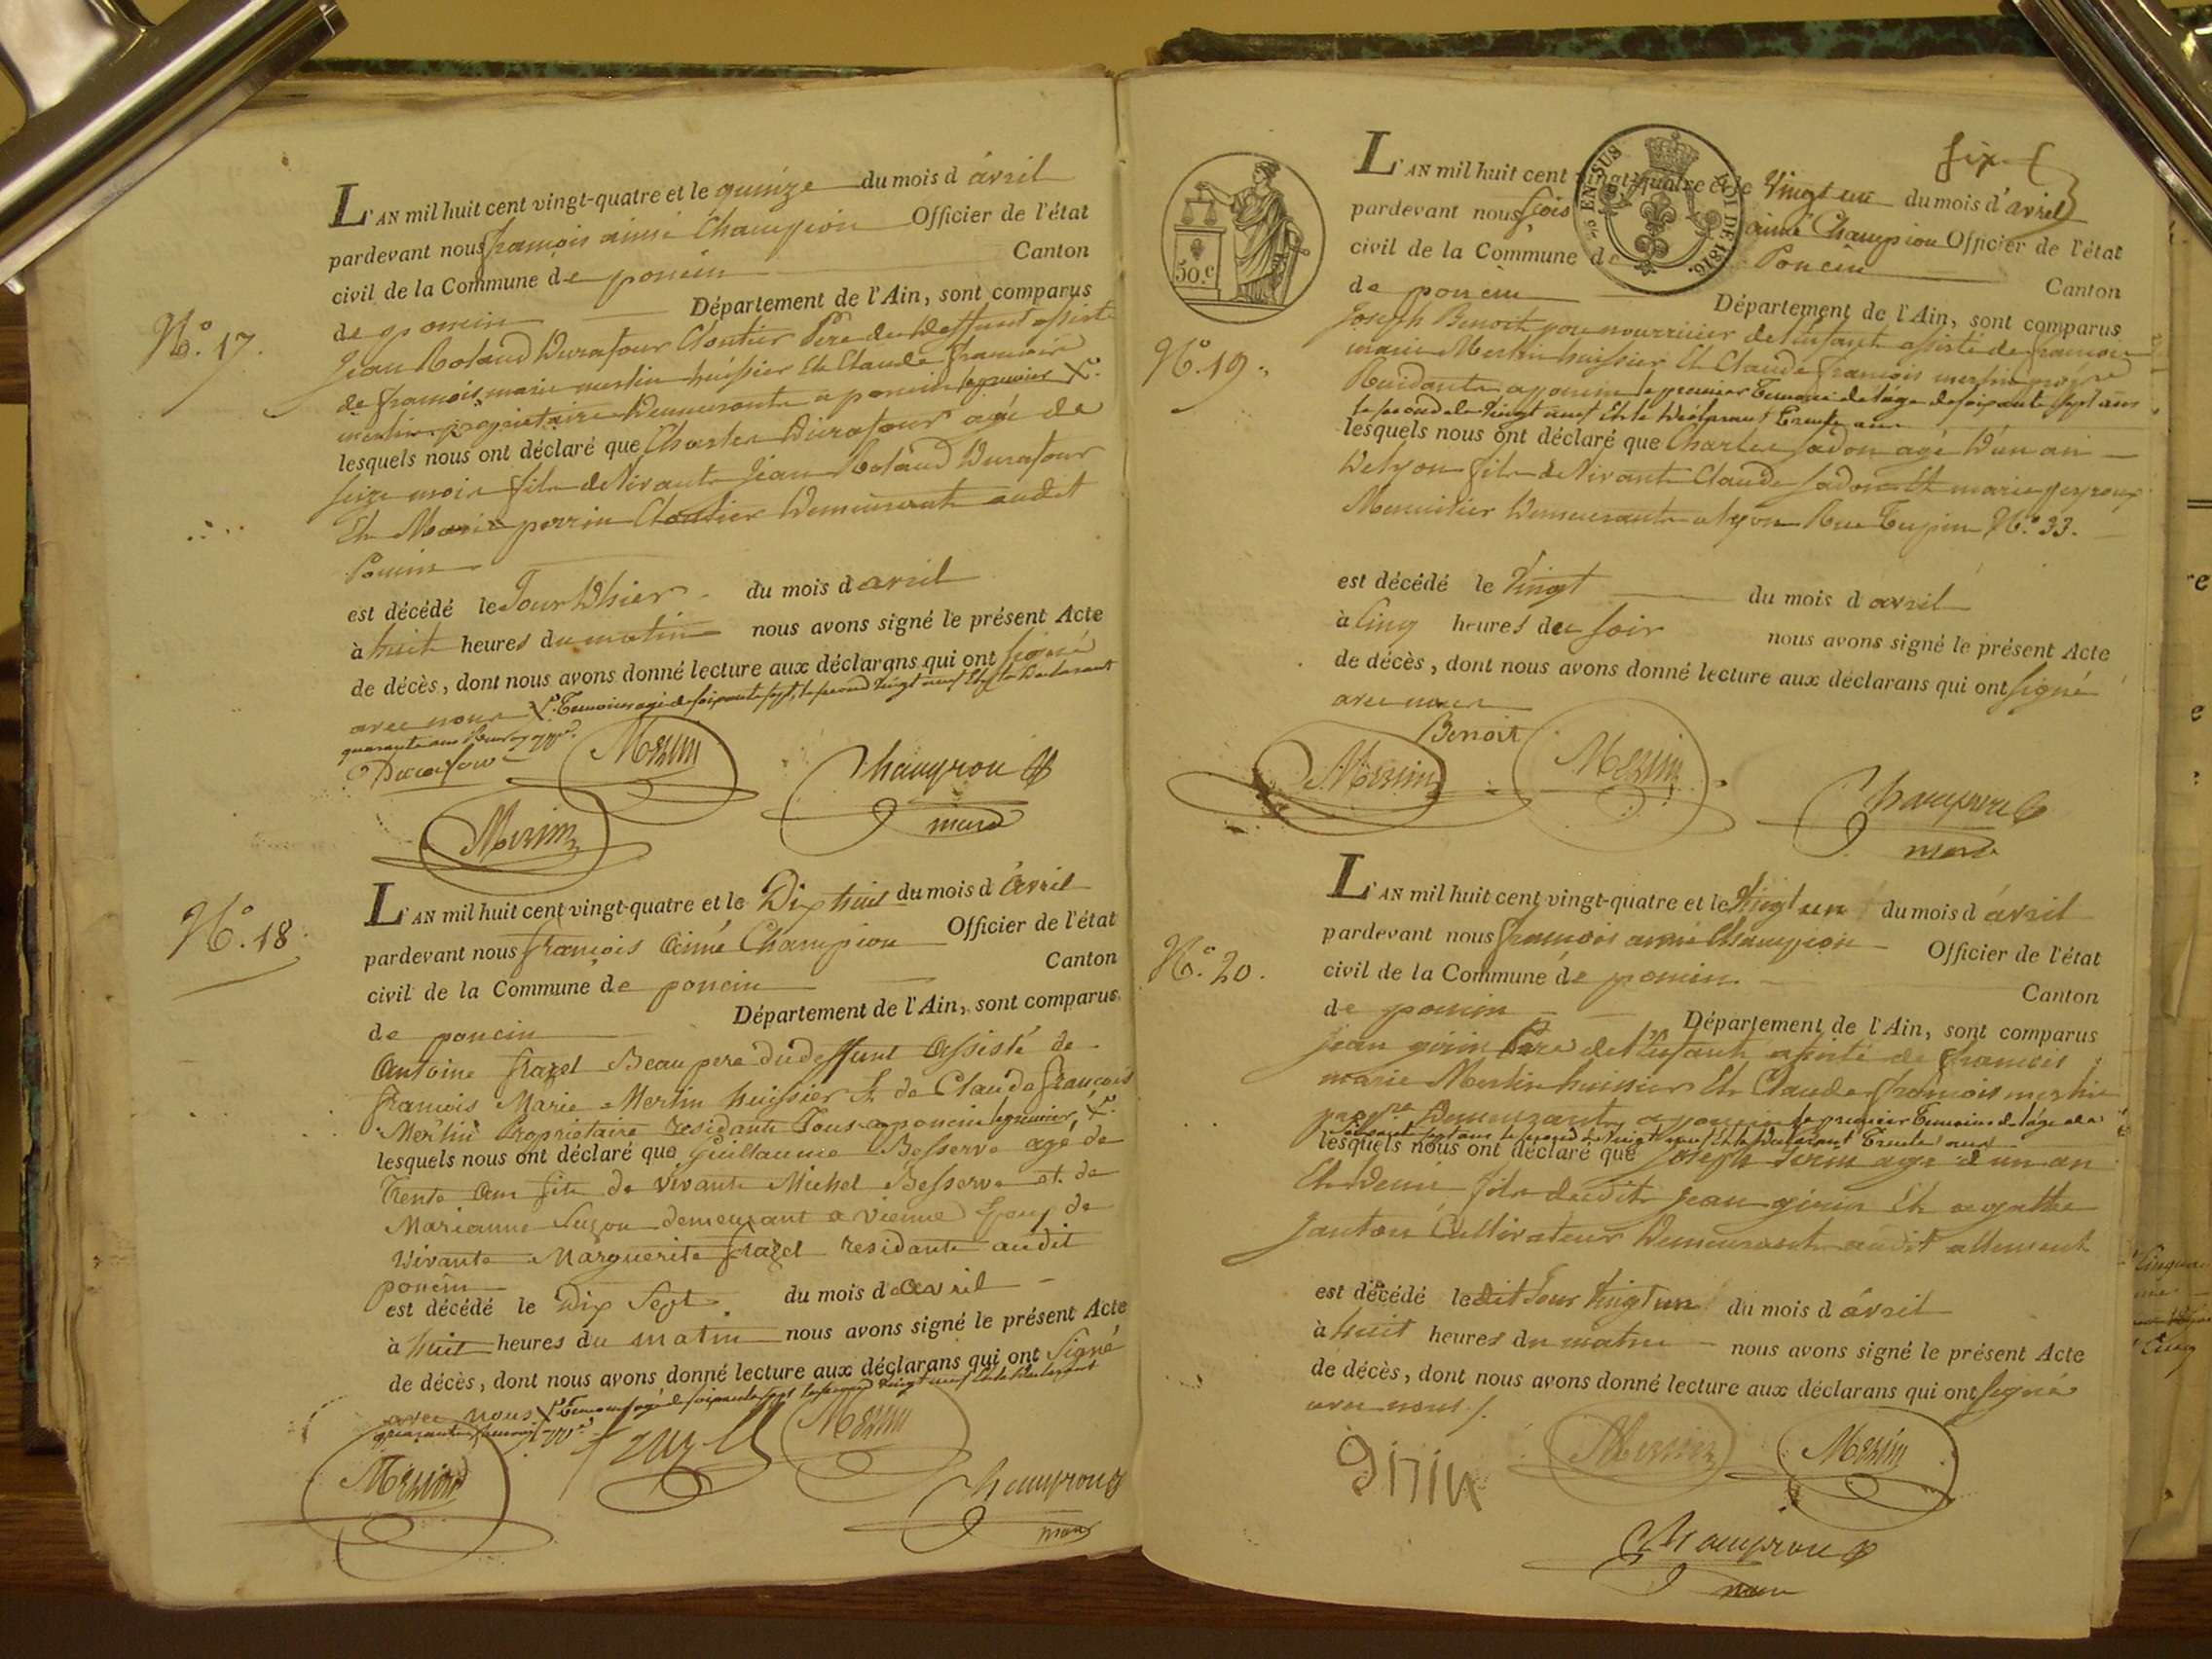 N.º 17.
L'AN mil huit cent vingt-quatre et le quinze du mois d avril
pardevant nous françois aimé Champion Officier de l'état
civil de la Commune de poncin Canton
de poncin Département de l'Ain, sont comparus
Jean Roland Durafour Cloutier Père du deffunt assisté
de françois marie merlin huissier Et Claude françois
merlin propriétaire Demeurants a poncin le premier X.
lesquels nous ont déclaré que Charles Durafour agé de
seize mois fils de vivants Jean Roland Durafour
Et Marie perrin Cloutier Demeurants audit
Poncin
est décédé le Jour D'hier du mois d avril
à huit heures du matin nous avons signé le présent Acte
de décès, dont nous avons donné lecture aux déclarans qui ont signé
avec nous X Temoins agé de soixante sept, le second vingt neuf Et le Declarant
quarante ans
Durafour Merlin Champion
maire
Merlin
N.º 18.
L'AN mil huit cent vingt-quatre et le Dix huit du mois d avril
pardevant nous françois Aimé Champion Officier de l'état
civil de la Commune de poncin Canton
de poncin Département de l'Ain, sont comparus
Antoine frazel Beau pere du deffunt Assisté de
francois Marie Merlin huissier Et de Claude francois
Merlin Propriétaire residants Tous a poncin le premier X.
lesquels nous ont déclaré que Guillaume Besserve agé de
trente ans fils de vivants Michel Besserve et de
Marianne Suzon demeurant a vienne Epoux de
vivante Marguerite frazel residante audit
poncin
est décédé le Dix Sept du mois d avril
à huit heures du matin nous avons signé le présent Acte
de décès, dont nous avons donné lecture aux déclarans qui ont Signé
avec nous X Temoins agé de soixante sept le second vingt neuf Et le Declarant
quarante
Merlin frazel Merlin
Champion
maire
six
50.c
EN SUS
LOI DE 1816.
N.º 19.
L'AN mil huit cent vingt-quatre et le Vingt un du mois d'avril
pardevant nous fçois aimé Champion Officier de l'état
civil de la Commune de Poncin Canton
de poncin Département de l'Ain, sont comparus
Joseph Benoit père nourricier de l'enfant assisté de francois
marie Merlin huissier Et Claude françois merlin
Residants a poncin le premier Temoin de l'âge de soixante sept ans
le second de Vingt neuf Et le Déclarant Trente ans
lesquels nous ont déclaré que Charles Sadon agé D'un an
De lyon fils de Vivants Claude Sadon Et marie peyroux
Menuisier Demeurants a lyon Rue Tupin N.º 33.
est décédé le Vingt du mois d avril
à Cinq heures du soir nous avons signé le présent Acte
de décès, dont nous avons donné lecture aux déclarans qui ont signé
avec nous
Benoit
Merlin Merlin
Champion
maire
N.º 20.
L'AN mil huit cent vingt-quatre et le Vingt un du mois d avril
pardevant nous francois aimé Champion Officier de l'état
civil de la Commune de poncin Canton
de poncin Département de l'Ain, sont comparus
Jean girin Père de l'Enfant assisté de francois
marie Merlin huissier Et Claude francois merlin
Demeurants a poncin le premier Temoin de l'âge de
soixante sept ans le second de Vingt neuf Et le Declarant Trente ans
lesquels nous ont déclaré que Joseph Girin age d'un an
Et Demi fils dudit Jean girin Et agathe
Janton Cultivateur Demeurants audit allement
est décédé ledit Jour Vingt un du mois d avril
à huit heures du matin nous avons signé le présent Acte
de décès, dont nous avons donné lecture aux déclarans qui ont signé
avec nous
girin Merlin Merlin
Champion
maire